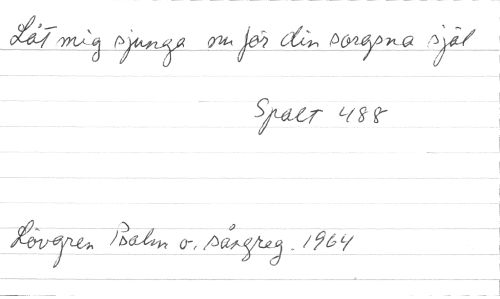 Låt mig sjunga nu för din sorgsna själ
Spalt 488
Lövgren Psalm o. sångreg. 1964